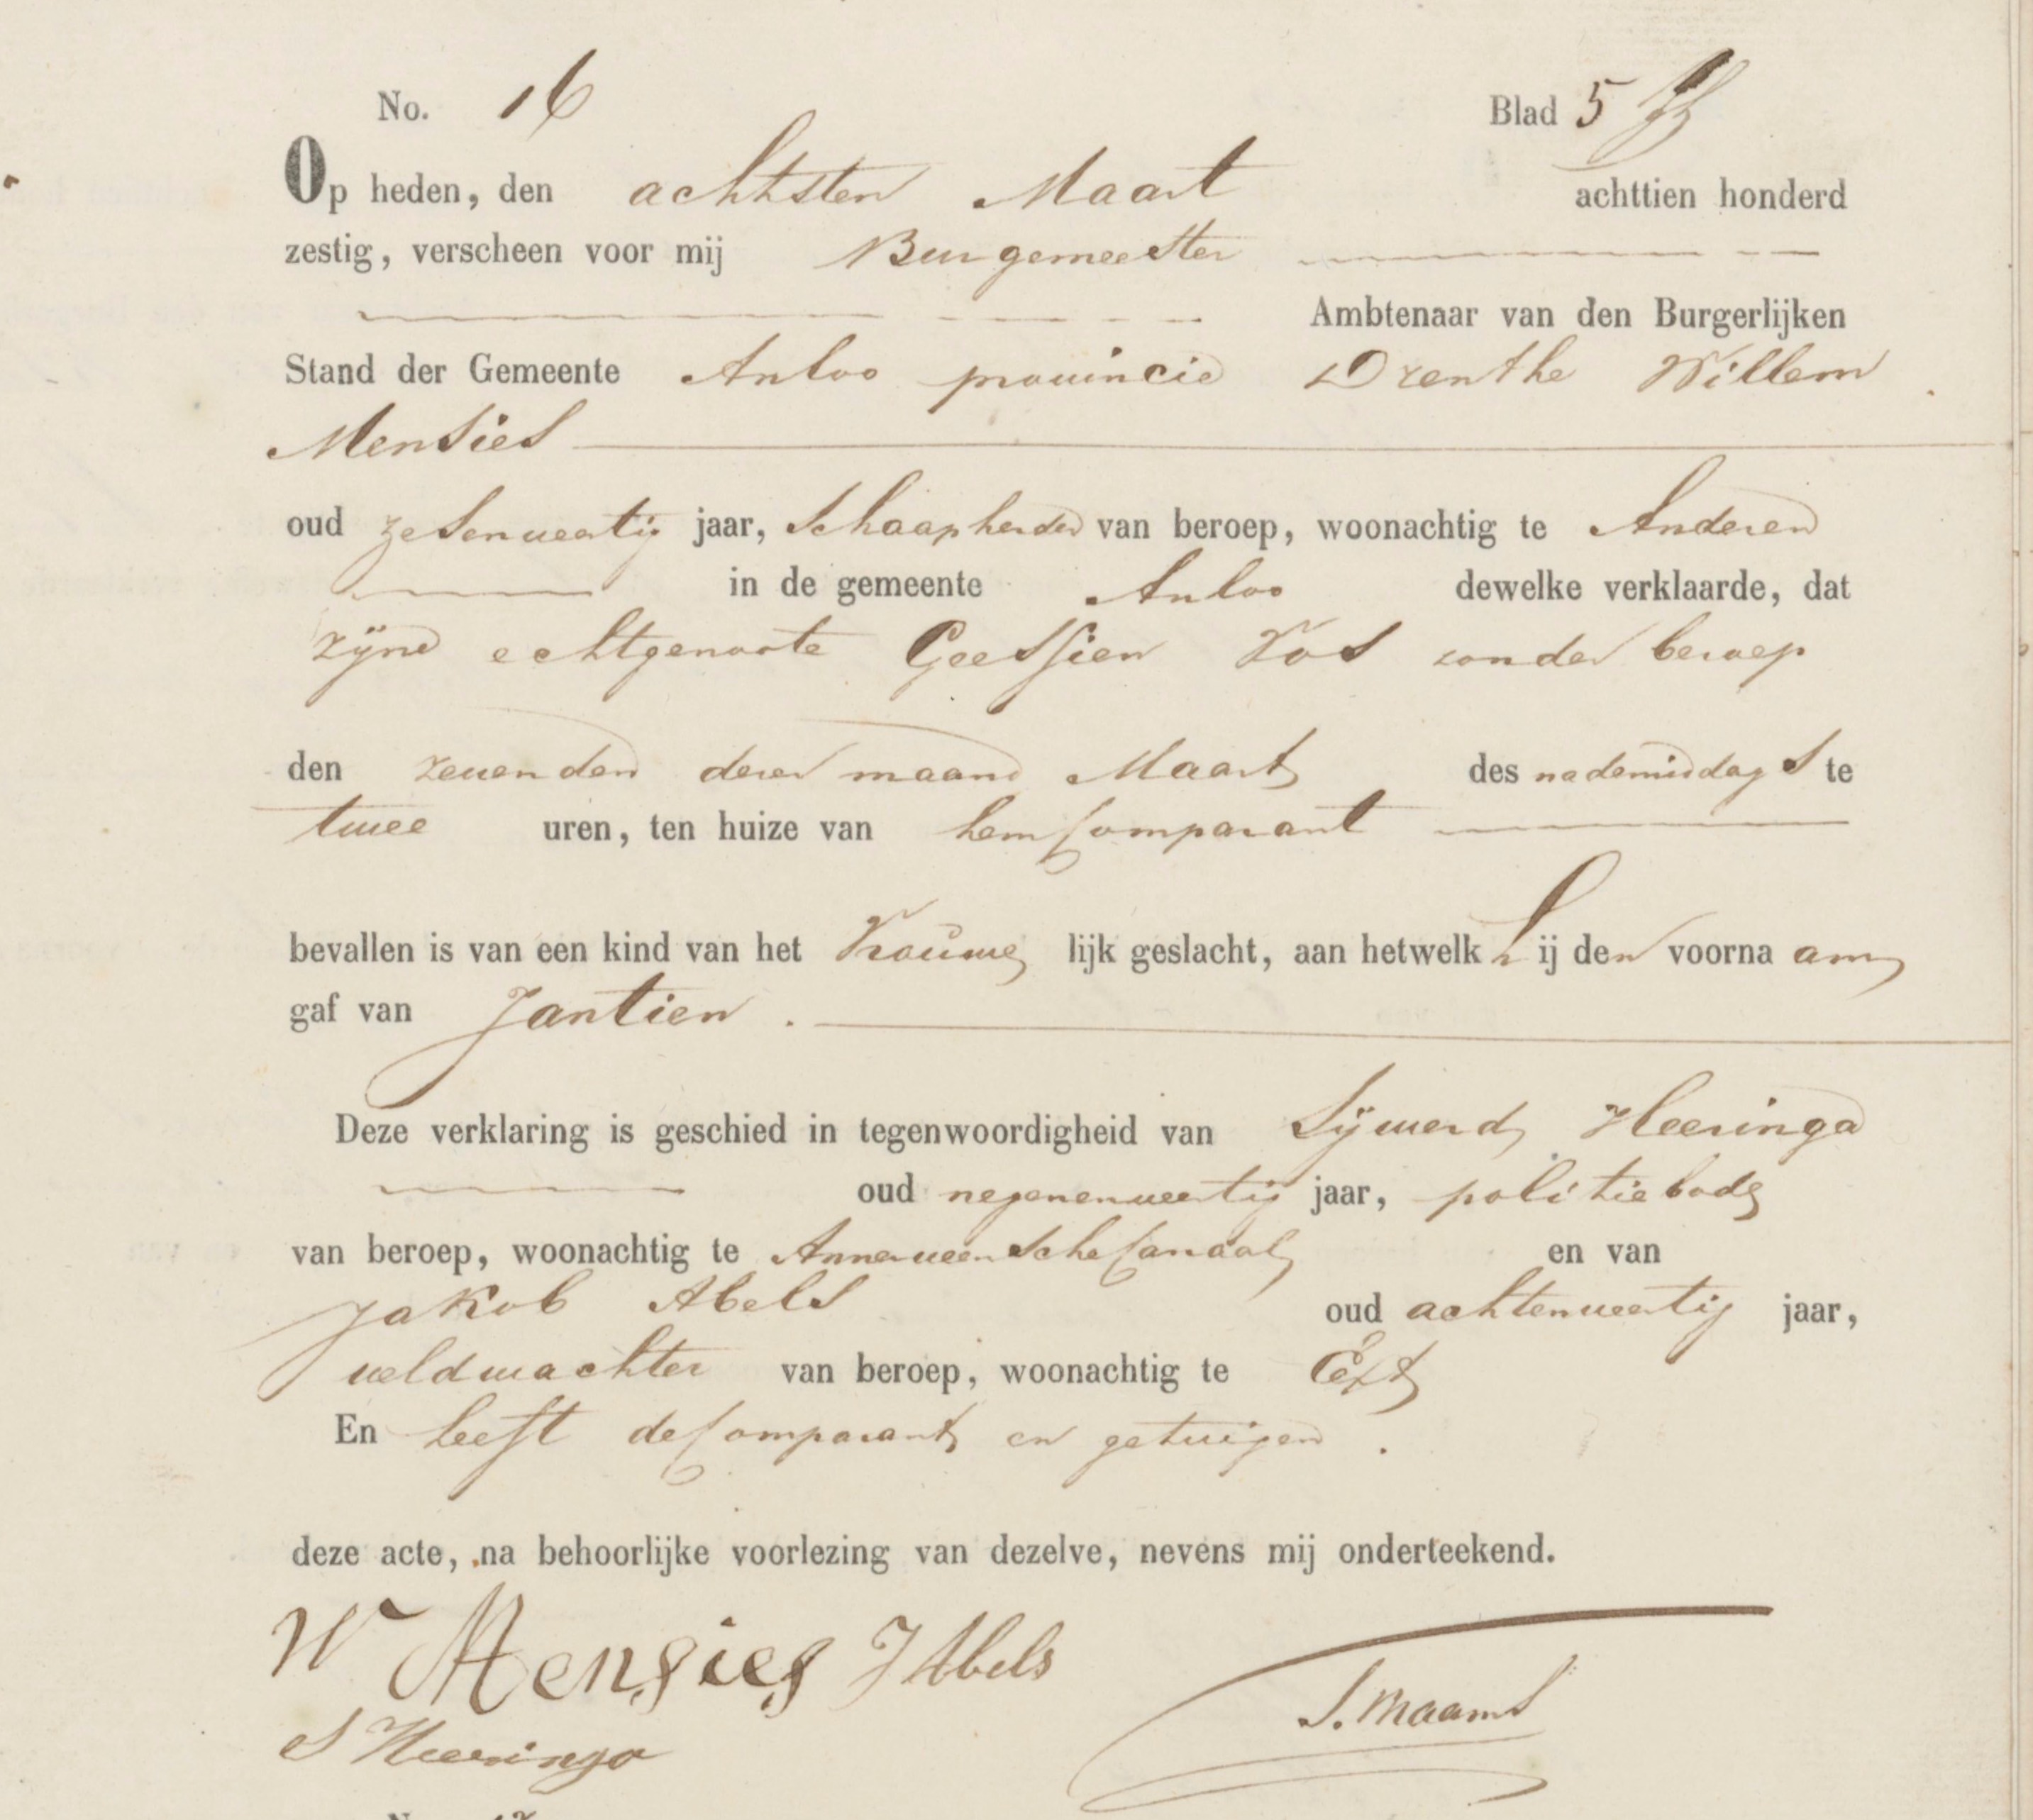 No. 16 Blad 5
Op heden, den achtsten Maart achttien honderd
zestig, verscheen voor mij Burgemeester
Ambtenaar van den Burgerlijken
Stand der Gemeente Anloo provincie Drenthe Willem
Mensies
oud zesenveertig jaar, Schaapherder van beroep, woonachtig te Anderen
in de gemeente Anloo dewelke verklaarde, dat
zijne echtgenoote Geessien Vos zonder beroep
den zevenden dezer maand Maart des nademiddags te
twee uren, ten huize van hem Comparant
bevallen is van een kind van het Vrouwe lijk geslacht, aan hetwelk h ij den voorna am
gaf van Jantien .
Deze verklaring is geschied in tegenwoordigheid van Sijwerd Heeringa
oud negenenveertig jaar, politiebode
van beroep, woonachtig te Annerveensche Canaal en van
Jakob Abels oud achtenveertig jaar,
veldwachter van beroep, woonachtig te Ext
En heeft de Comparant en getuigen .
deze acte, na behoorlijke voorlezing van dezelve, nevens mij onderteekend.
W Mensies J Abels
S. Maams
S Heeringa